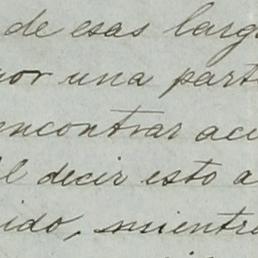 de esas larg
por una part
encontrar acu
Al decir esto a
ido, mientra